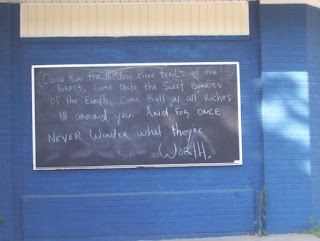 Come Run the Hidden Pine Trails of the
Forest, Come Taste the Sweet Berries
Of the Earth, Come Roll in all Riches
All around you. And For once
NEVER Wonder what they're
Worth.